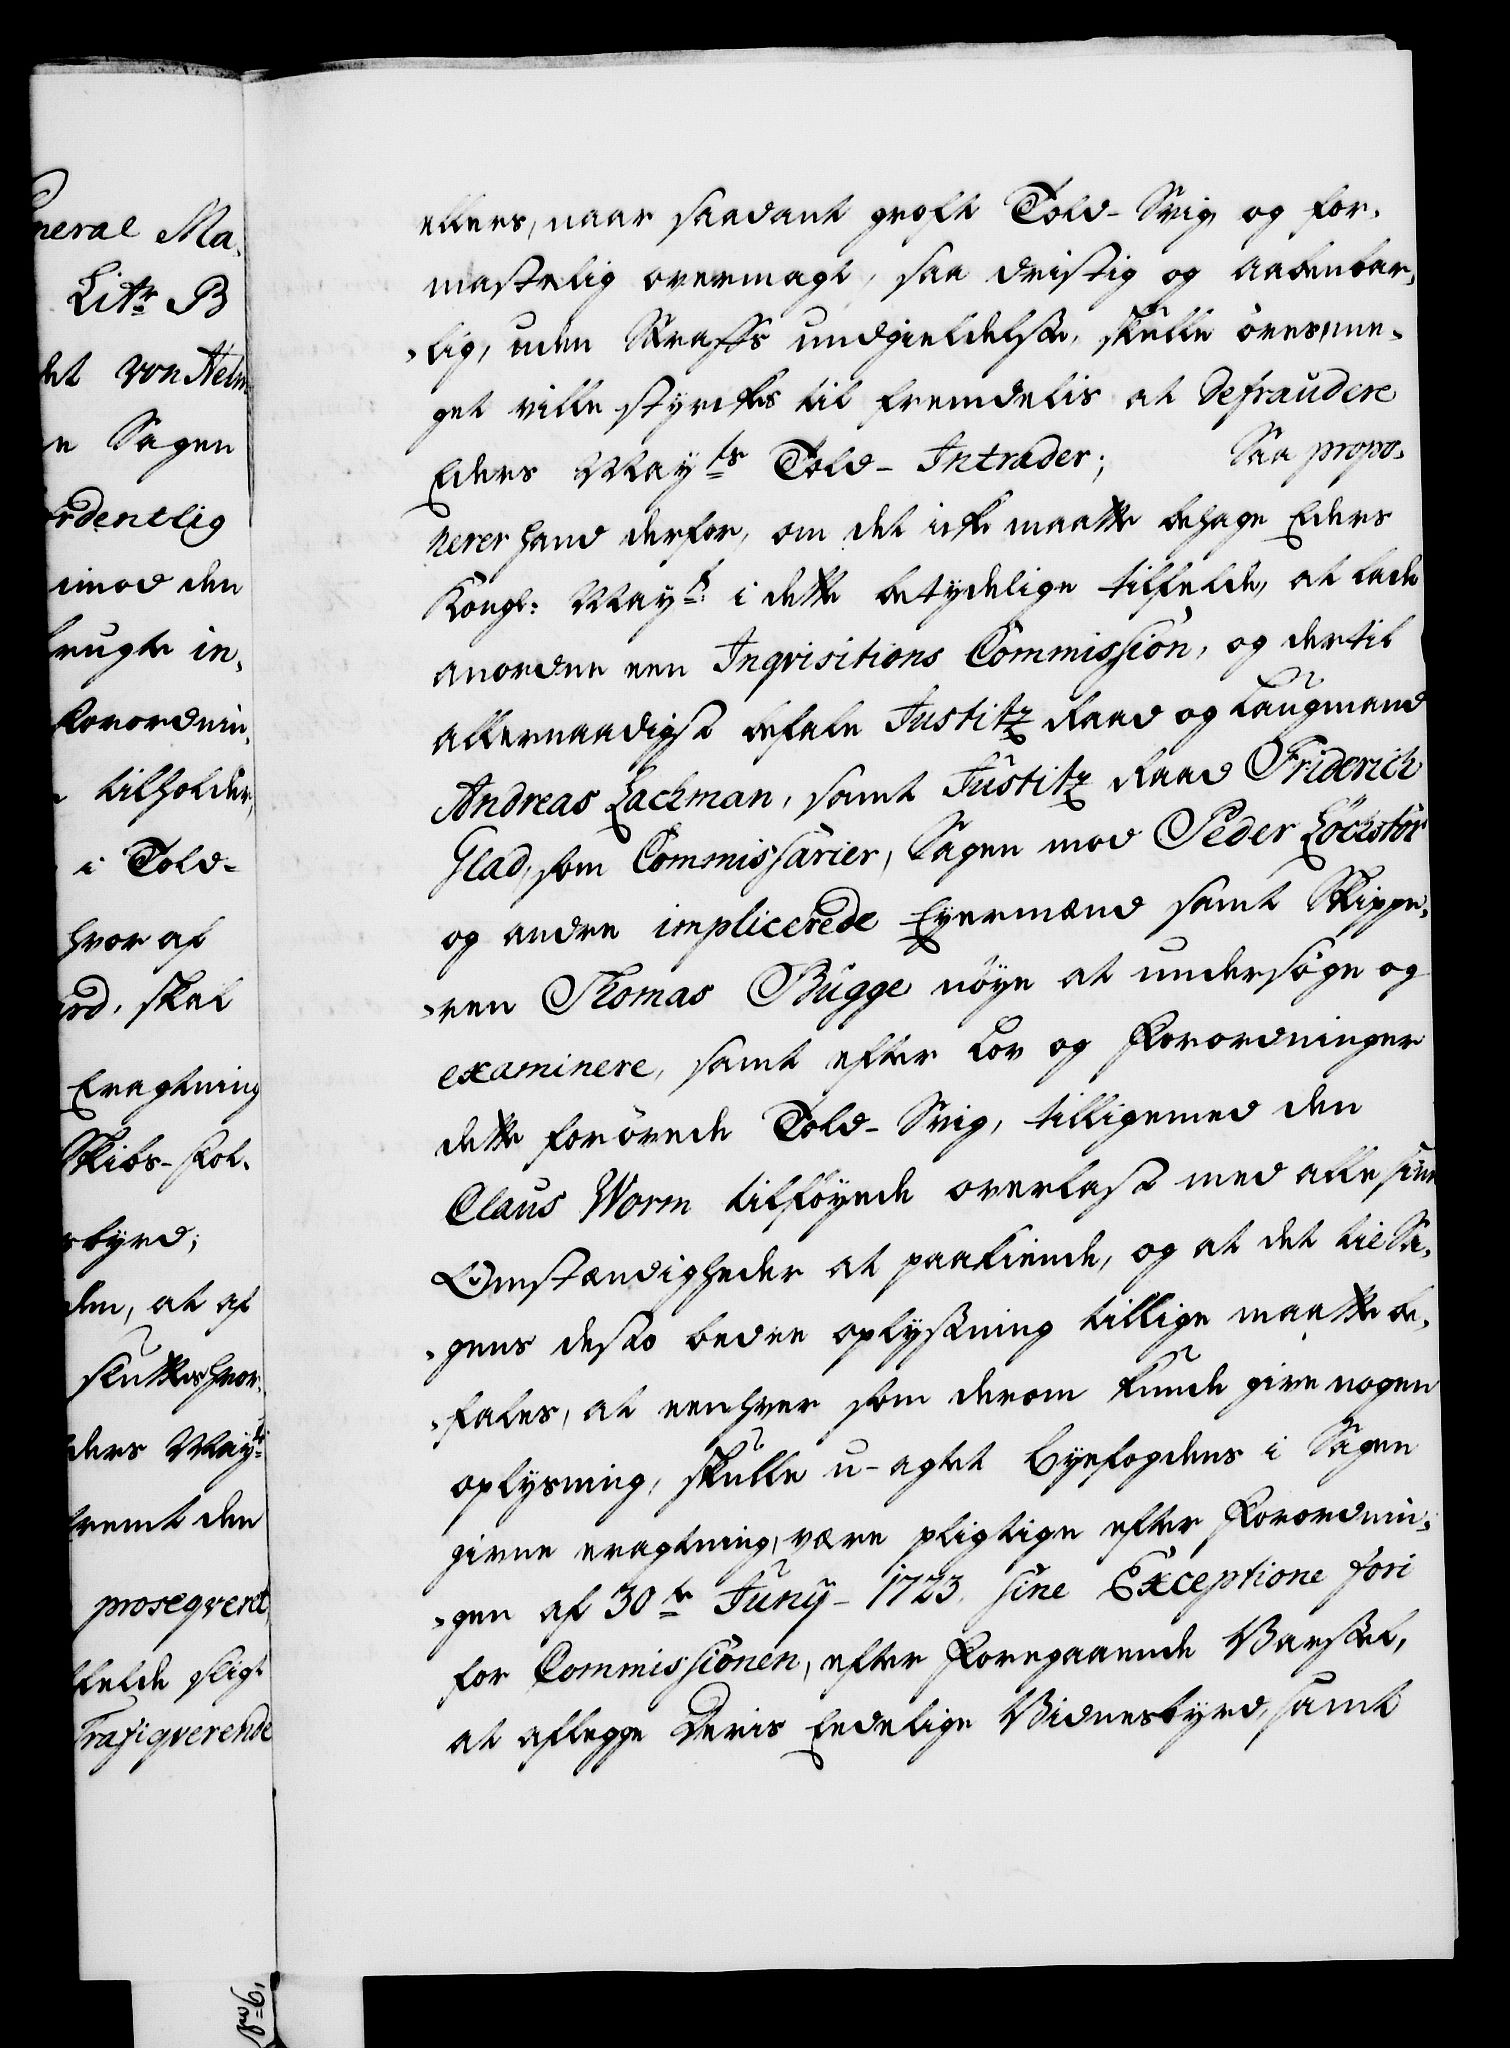 neral Ma-
Litr B
det von Helm
e Sagen
rdentlig
imod den
brugte in-
Forordnin-
tilholder,
i Told-
hvor af
rd, skal
Eragtning
Skibs-fol-
sbyrd;
den, at af
sluttes hvor-
ders Mayts
fremt den
proseqveret
felde sligt
Trafiqverende
ellers, naar saadant groft Told-Svig og for-
mastelig overmagt, saa dristig og aabenbar-
-lig, uden Straffs undgieldelse, skulle ofverme-
get ville styrckes til fremdelis at defraudere
Eders Mayts Told-Intrader; Saa propo-
nerer hand derfor, om det icke maatte behage Eders
Kongl: Mayt: i dette betydelige tilfelde, at lade
anordne een Inqvisitions Commission, og dertil
allernaadigst befale Justitz Raad og Laugmand
Andreas Lachman, samt Justitz Raad Friderich
Glad, som Commissarier, Sagen mod Peder Löchstör
og andre implicerede Eyermænd samt Skippe-
-ren Thomas Bugge nöye at undersöge og
examinere, samt efter Lov og Forordninger
dette forövede Told-Svig, tilligemed den
Claus Worm tilföyede overlast med alle sine
Omstændigheder at paakiende, og at det til Sa-
-gens desto bedre oplysning tillige maatte be-
-fales, at eenhver som derom kunde give nogen
oplysning, skulle u-agtet Byefogdens i Sagen
givne eragtning, være pligtige efter Forordnin-
-gen af 30te Junÿ-1723. sine Exceptione fori
for Commissionen, efter foregaaende Varsel,
at aflegge deris Eedelige Vidnesbyrd, samt